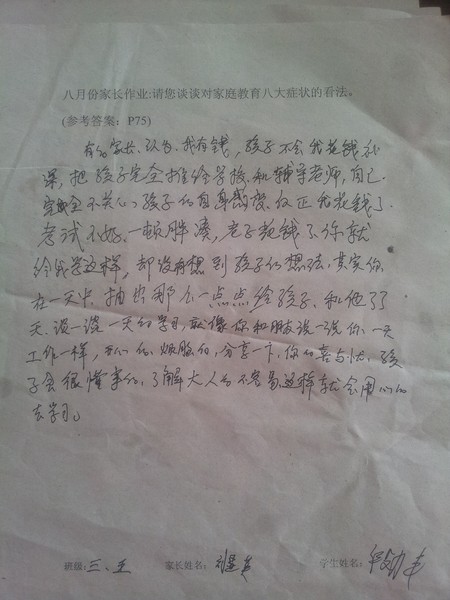 八月份家长作业:请您谈谈对家庭教育八大症状的看法。
(参考答案：P75)
有的家长认为、我有钱，孩子不会我花钱补
课，把孩子完全推给学校、和辅导老师，自己
完全不关心孩子的自身感受、反正我花钱了
考试不好、一顿胖凑，老子花钱了你就
给我学这样，都没有想到孩子的想法，其实你
在一天中、抽出那么一点点给孩子、和他了了
天、谈一谈一天的学习、就像你和朋友说一说你、一天
工作一样，开心的、烦脑的，分享一下，你的喜与忧、孩
子会很懂事的，了解大人的不容易这样就会用心的
去学习。
班级: 三、五 家长姓名: 学生姓名: